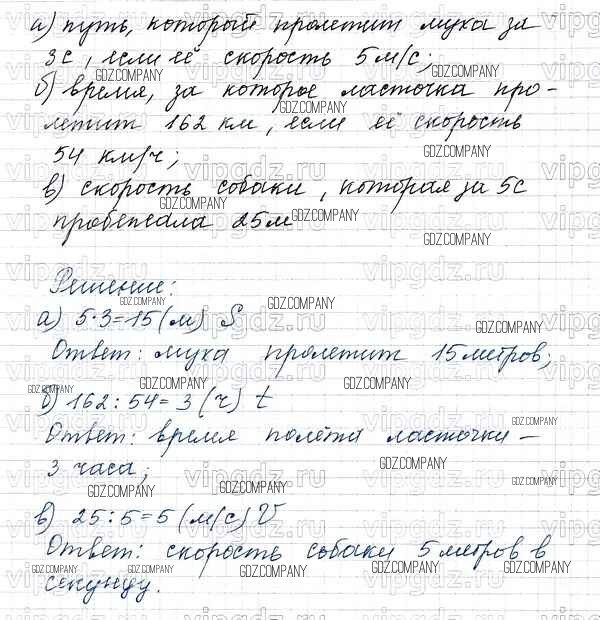 а) путь, который пролетит муха за
3с, если её скорость 5м/с;
б) время, за которое ласточка про-
летит 162 км, если её скорость
54 км/ч;
в) скорость собаки, которая за 5с
пробежала 25м
Решение:
а) 5·3=15(м) S
Ответ: муха пролетит 15 метров;
б) 162:54=3(ч) t
Ответ: время полёта ласточки –
3 часа;
в) 25:5=5(м/с) V
Ответ: скорость собаки 5 метров в
секунду.
GDZ.COMPANY
vipgdz.ru